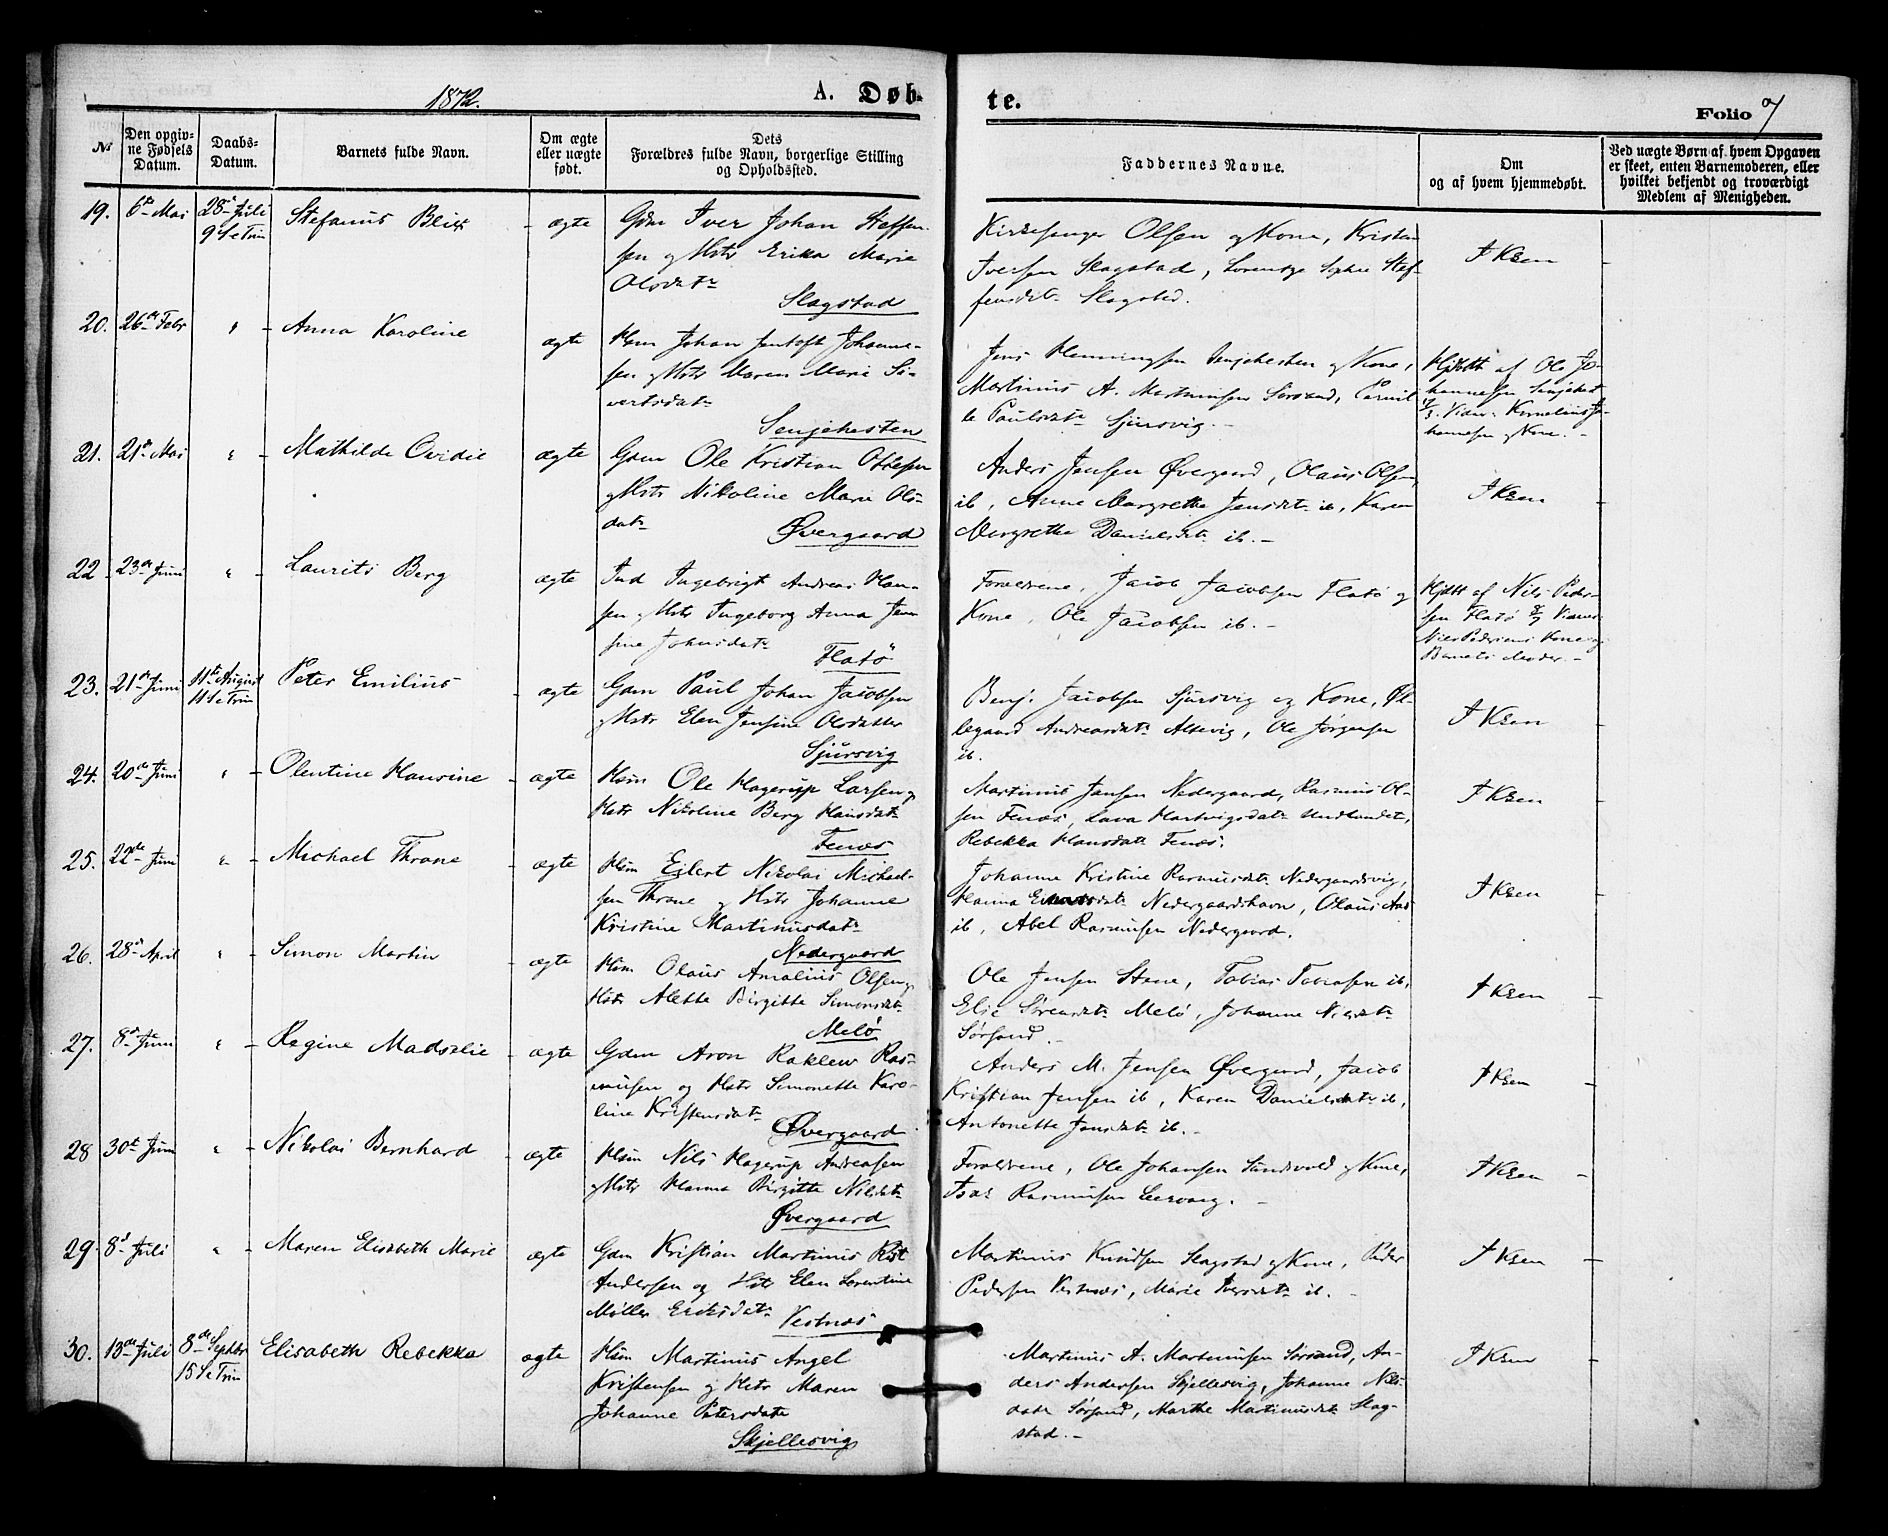 1872.
A. Døb-
te.
Folio 7
№
Den opgiv-
ne Fødsels
Datum.
Daabs-
Datum.
Barnets fulde Navn.
Om ægte
eller uægte
født.
Dets
Forældres fulde Navn, borgerlige Stilling
og Opholdssted.
Faddernes Navne.
Om
og af hvem hjemmedøbt.
Ved uægte Børn af hvem Opgaven
er skeet, enten Barnemoderen, eller
hvilket bekjendt og troværdigt
Medlem af Menigheden.
19. 6te Mai 28de Juli
9 S e Trin
Stefanus Blix - ægte
Gdm Iver Johan Steffen-
sen og Hstr Erika Marie
Olsdatr
Slagstad
Kirkesanger Olsen og Kone, Kristen
Iversen Slagstad, Lorentze Sophie Stef-
fensdtr Slagstad.
I Ksen -
20. 26de Febr " - Anna Karoline
ægte
Hsm Johan Jentoft Johanne-
sen og Hstr Maren Marie Si-
vertsdatr
Senjehesten
Jens Henningsen Senjehesten og Kone,
Martinus A. Martinusen Sørsand, Pernil-
le Paulsdtr Sjursvig. -
Hjdøbt af Ole Jo-
hannesen Senjehest
Vidner: Kornelius Jo-
hannesen og Kone. -
21. 21de Mai " - Mathilde Ovidie ægte
Gdm Ole Kristian Ottesen
og Hstr Nikoline Marie Ols-
datr
Øvergaard
Anders Jensen Øvergaard, Olaus Olsen
ib, Anne Margrethe Jensdtr ib, Karen
Margrethe Danielsdtr ib. -
I Ksen -
22 23de Juni " - Laurits Berg ægte
Ind Ingebrigt Andreas Han-
sen og Hstr Ingeborg Anna Jen-
sine Johnsdatr
Flatø
Forældrene, Jacob Jacobsen Flatø og
Kone, Ole Jacobsen ib. -
Hjdøbt af Nils Peder-
sen Flatø Vidner
Nils Pedersens Kone og
Barnets Moder. -
23. 21de Juni 11te August
11 S e Trin
Peter Emilius - ægte
Gdm Paul Johan Jacobsen
og Hstr Elen Jensine Olsdatter
Sjursvig
Benj. Jacobsen Sjursvig og Kone, Øl-
legaard Andreasdtr Altevig, Ole Jørgensen
ib.
I Ksen -
24. 20de Juni " - Olentine Hansine - ægte
Hsm Ole Hagerup Larsen og
Hstr Nikoline Berg Hansdatr
Fenæs
Martinus Jansen Nedergaard, Rasmus Ol-
sen Fenæs, Lava Hartvigsdatr Undlandet,
Rebekka Hansdatr Fenæs.
I Ksen -
25. 22de Juni " - Michael Thrane - ægte
Hsm Eilert Nikolai Michael-
sen Thrane og Hstr Johanne
Kristine Martinusdatr
Nedergaard
Johanne Kristine Rasmusdtr Nedergaardsvig,
Hanna dtr Nedergaardshavn, Olaus
ib, Abel Rasmusen Nedergaard.
I Ksen -
26. 28de April " - Simon Martin - ægte
Hsm Olaus Amalius Olsen og
Hstr Alette Birgitte Simonsdtr
Melö
Ole Jensen Stene, Tobias Tobiasen ib,
Elie Sørensdtr Melö, Johanne Nilsdtr
Sørsand. -
I Ksen -
27. 8de Juni " - Regine Madselie - ægte
Gdm Aron Raklew Ras-
musen og Hstr Simonette Karo-
line Kristensdatr
Øvergaard
Anders M. Jensen Øvergaard, Jacob
Kristian Jensen ib, Karen Danielsdatr ib,
Antonette Jensdtr ib. -
I Ksen -
28 30te Juni " - Nikolai Bernhard - ægte
Hsm Nils Hagerup Andreasen
og Hstr Hanna Birgitte Nilsdatr
Øvergaard
Forældrene, Ole Johansen Sandvold og Kone,
Isak Rasmusen Leervaag. -
I Ksen -
29. 8de Juli " - Maren Elisabeth Marie ægte
Gdm Kristian Martinus Rist
Andersen og Hstr Elen Lorentine
Møller Eriksdatr
Vestnæs
Martinus Knudsen Slagstad og Kone, Peder
Pedersen Vestnæs, Marie Iversdtr ib. -
I Ksen -
30. 13de Juli 8de Septbr
15 S e Trin
Elisabeth Rebekka ægte
Hsm Martinus Angel
Kristensen og Hstr Maren
Johanne Petersdatr
Skjellesvig
Martinus A. Martinusen Sørsand, An-
ders Andersen Skjellesvig, Johanne Nils-
datr Sørsand, Marthe Martinusdtr Slag-
stad. -
I Ksen -